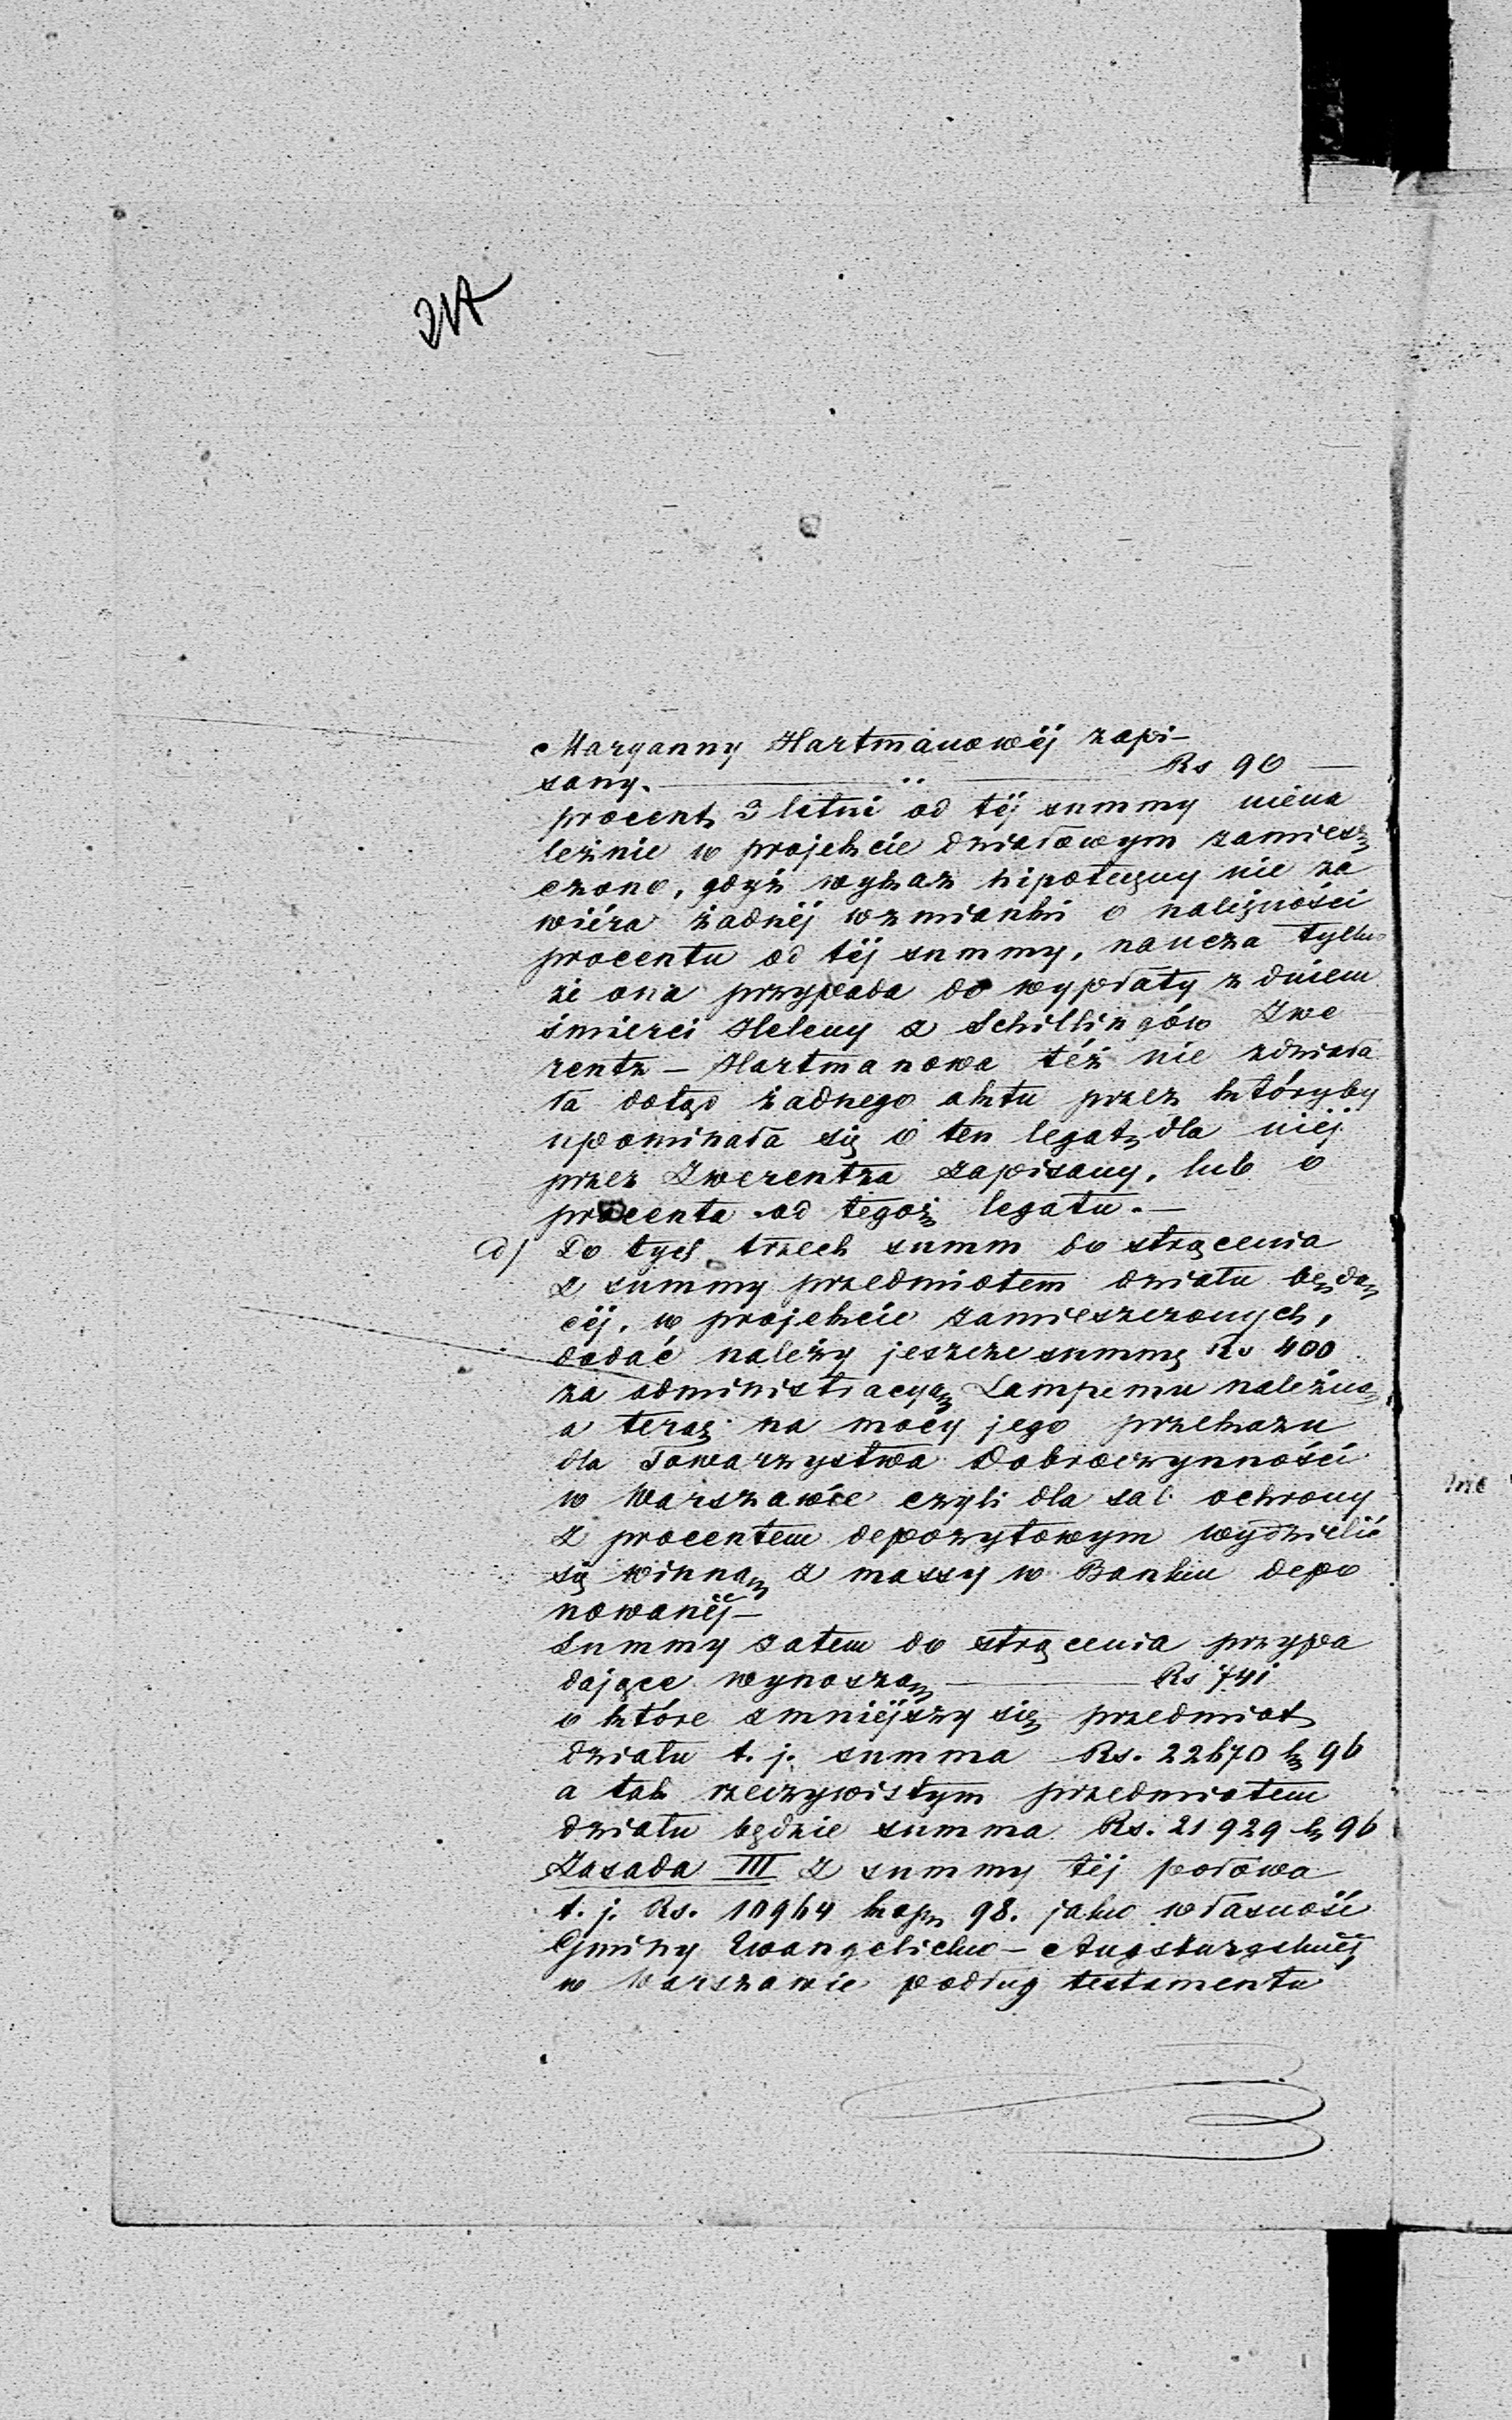 217
Maryanny Hartmanowéj zapi-
sany. — Rs 90 —
procent 3 letni od téj summy niena
leżnie w projekcie działowym zamiesz
czono, gdyż wykaz hipoteczny nie za
wiéra żadnéj wzmianki o należności
procentu od téj summy, naucza tylko
że ona przypada do wypłaty z dniem
śmierci Heleny z Schillingów Zwe
rentz – Hartmanowa też nie zdziała
ła dotąd żadnego aktu przez któryby
upominała się o ten legat dla niéj
przez Zwerentza zapisany, lub o
procenta od tegoż legatu. —
d/ Do tych trzech summ do strącenia
z summy przedmiotem działu będą
céj, w projekcie zamieszczonych,
dodać należy jeszcze summę Rs 400
za administracyą Lampemu należną
a teraz na mocy jego przekazu
dla Towarzystwa Dobroczynności
w Warszawie czyli dla sal ochrony
z procentem depozytowym wydzielić
się winna z massy w Banku depo
nowanéj —
Summy zatem do strącenia przypa
dające wynoszą — Rs 741
o które zmniéjszy się przedmiot
działu t. j. summa Rs. 22670 k 96
a tak rzeczywistym przedmiotem
działu będzie summa Rs. 21929 k 96
Zasada III Z summy téj połowa
t. j. Rs. 10964 kop 98. jako własność
Gminy Ewangelicko – Augsburgskiéj
w Warszawie podług testamentu